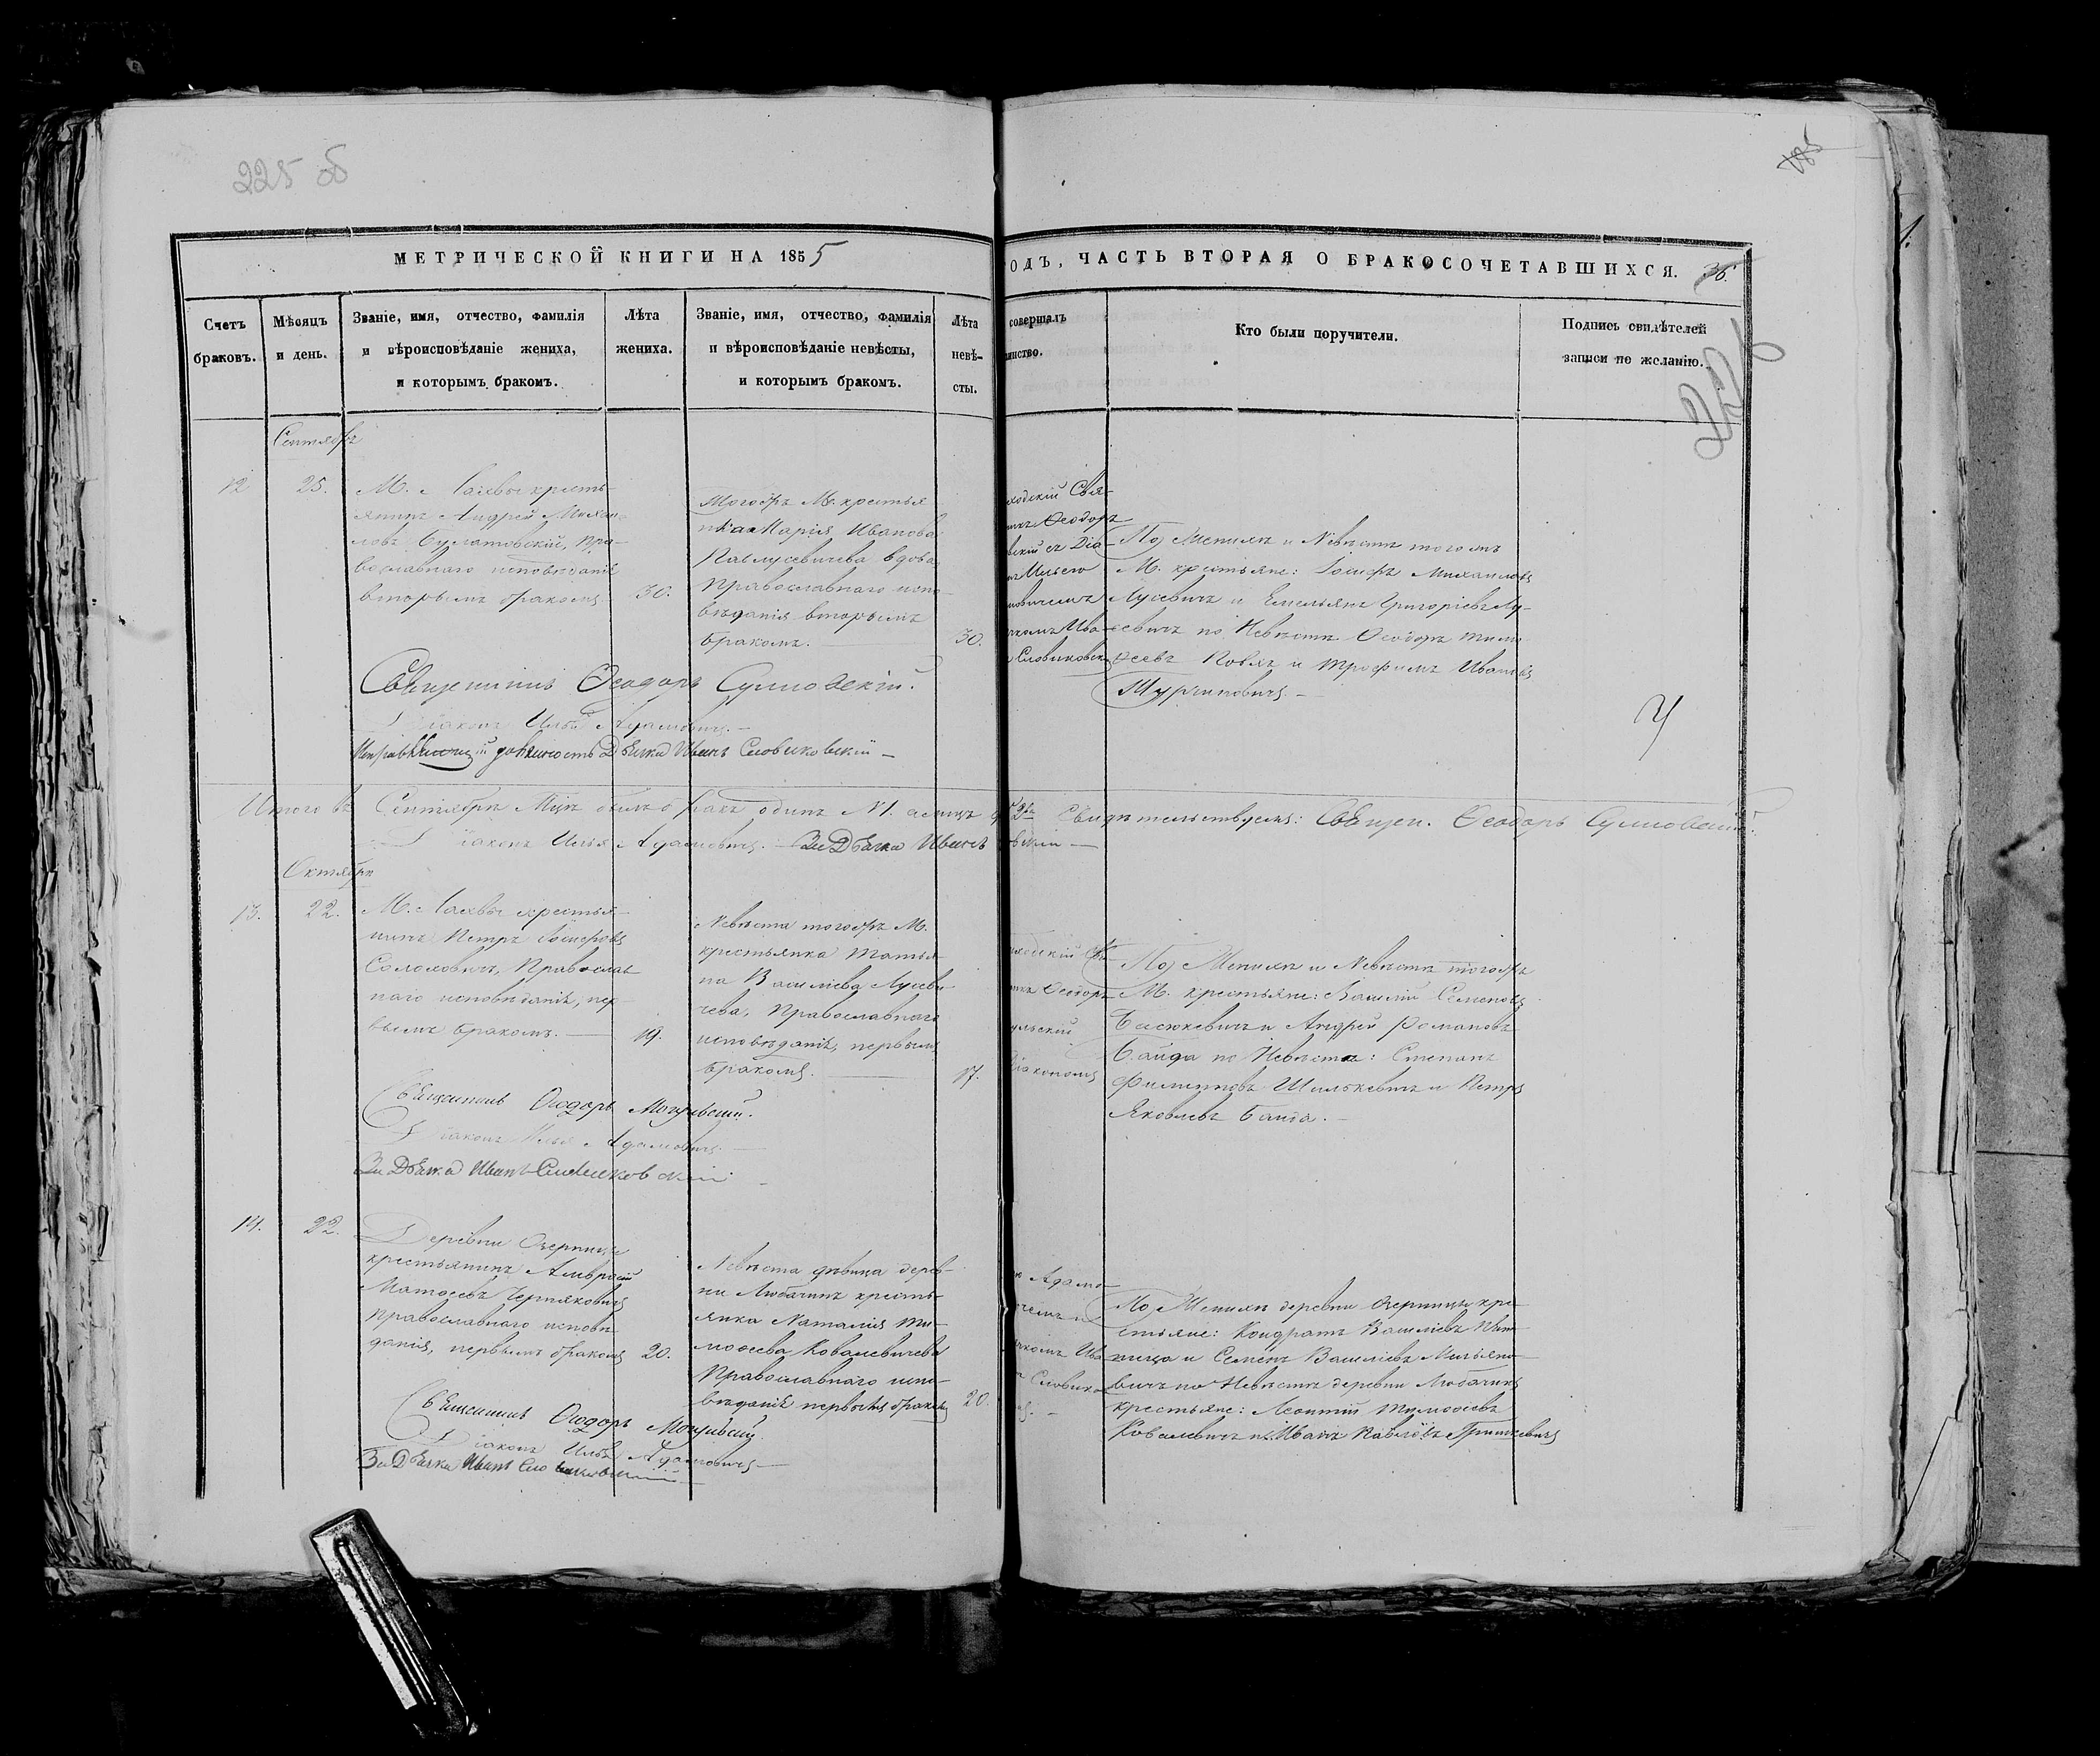 225 об
185
МЕТРИЧЕСКОЙ КНИГИ НА 1855
ОДЪ, ЧАСТЬ ВТОРАЯ О БРАКОСОЧЕТАВШИХСЯ. 36.
Счетъ браковъ.
Мѣсяцъ и день.
Званіе, имя, отчество, фамилія
и вѣроисповѣданіе жениха,
и которымъ бракомъ.
Лѣта жениха.
Званіе, имя, отчество, фамилія
и вѣроисповѣданіе невѣсты,
и которымъ бракомъ.
Лѣта невѣ-
сты.
совершалъ
инство.
Кто были поручители.
Подпись свидѣтелей
записи по желанію.
Сентябрь
12
25.
М. Лахвы кресть-
янинъ Андрей Михаи-
ловъ Булатовскій, Пра-
вославнаго исповѣданія
вторымъ бракомъ
30.
Тогожъ М. крестья
нка Марія Иванова
вдова
Православнаго испо-
вѣданія вторымъ
бракомъ.
30.
ходскій Свя-
никъ Ѳеодоръ
вскій съ Діа-
Ильею
мовичемъ
ячкомъ Ива-
Словиковск
По Женихѣ и Невѣстѣ тогожъ
М. крестьяне: Іосифъ Михаиловъ
Лусевичъ и Емельянъ Григоріевъ Лу-
севичъ по Невѣстѣ Ѳеодоръ Тимо-
ѳеевъ и Трофимъ Ивановъ
Священникъ Ѳеодоръ
Діаконъ Илья Адамовичъ.
Исправляющій должность Дьячка Иванъ Словиковскій
Итого въ Сентябрѣ Мцѣ былъ бракъ одинъ №1. а лицъ 2ва Свидѣтельствуемъ: Священ. Ѳеодоръ
Діаконъ Илья Адамовичъ. За Дьячка Иванъ вскій
Октября
13.
22.
М. Лахвы крестья-
нинъ Петръ Іосифовъ
Соломовичъ, Православ
наго исповѣданія, пер-
вымъ бракомъ.
19.
Невѣста тогожъ М.
крестьянка Татья-
на Василіева Лусеви-
чева, Православнаго
исповѣданія, первымъ
бракомъ.
17.
ходскій Св
никъ Ѳеодоръ
ульскій
Діакономъ
По Женихѣ и Невѣстѣ тогожъ
М. крестьяне: Василій Семеновъ
Басюкевичъ и Андрей Романовъ
Байда по Невѣстѣ: Степанъ
Филиповъ Шилкевичъ и Петръ
Яковлевъ Баида.
Священникъ Ѳеодоръ
Діаконъ Илья Адамовичъ.
За Дьячка Иванъ Словиковскій
14.
22.
Деревни
крестьянинъ Амвросій
Матѳеевъ Черняковичъ
Православнаго исповѣ
данія, первымъ бракомъ
20.
Невѣста дѣвица дерев-
ни Любачинъ кресть-
янка Наталія Ти-
моѳеева Ковалевичева
Православнаго испо-
вѣданія первымъ бракомъ
20.
ю Адамо-
чемъ и
ячкомъ Ива
Словико
По Женихѣ деревни кре-
стьяне: Кондратъ Василіевъ
и Семенъ Василіевъ
вичъ по Невѣстѣ деревни Любачинъ
крестьяне: Леонтій Тимоѳеевъ
Ковалевичъ и Иванъ Павловъ Гришкевичъ
Священникъ Ѳеодоръ
Діаконъ Илья Адамовичъ
За Дьячка Иванъ Словиковскій